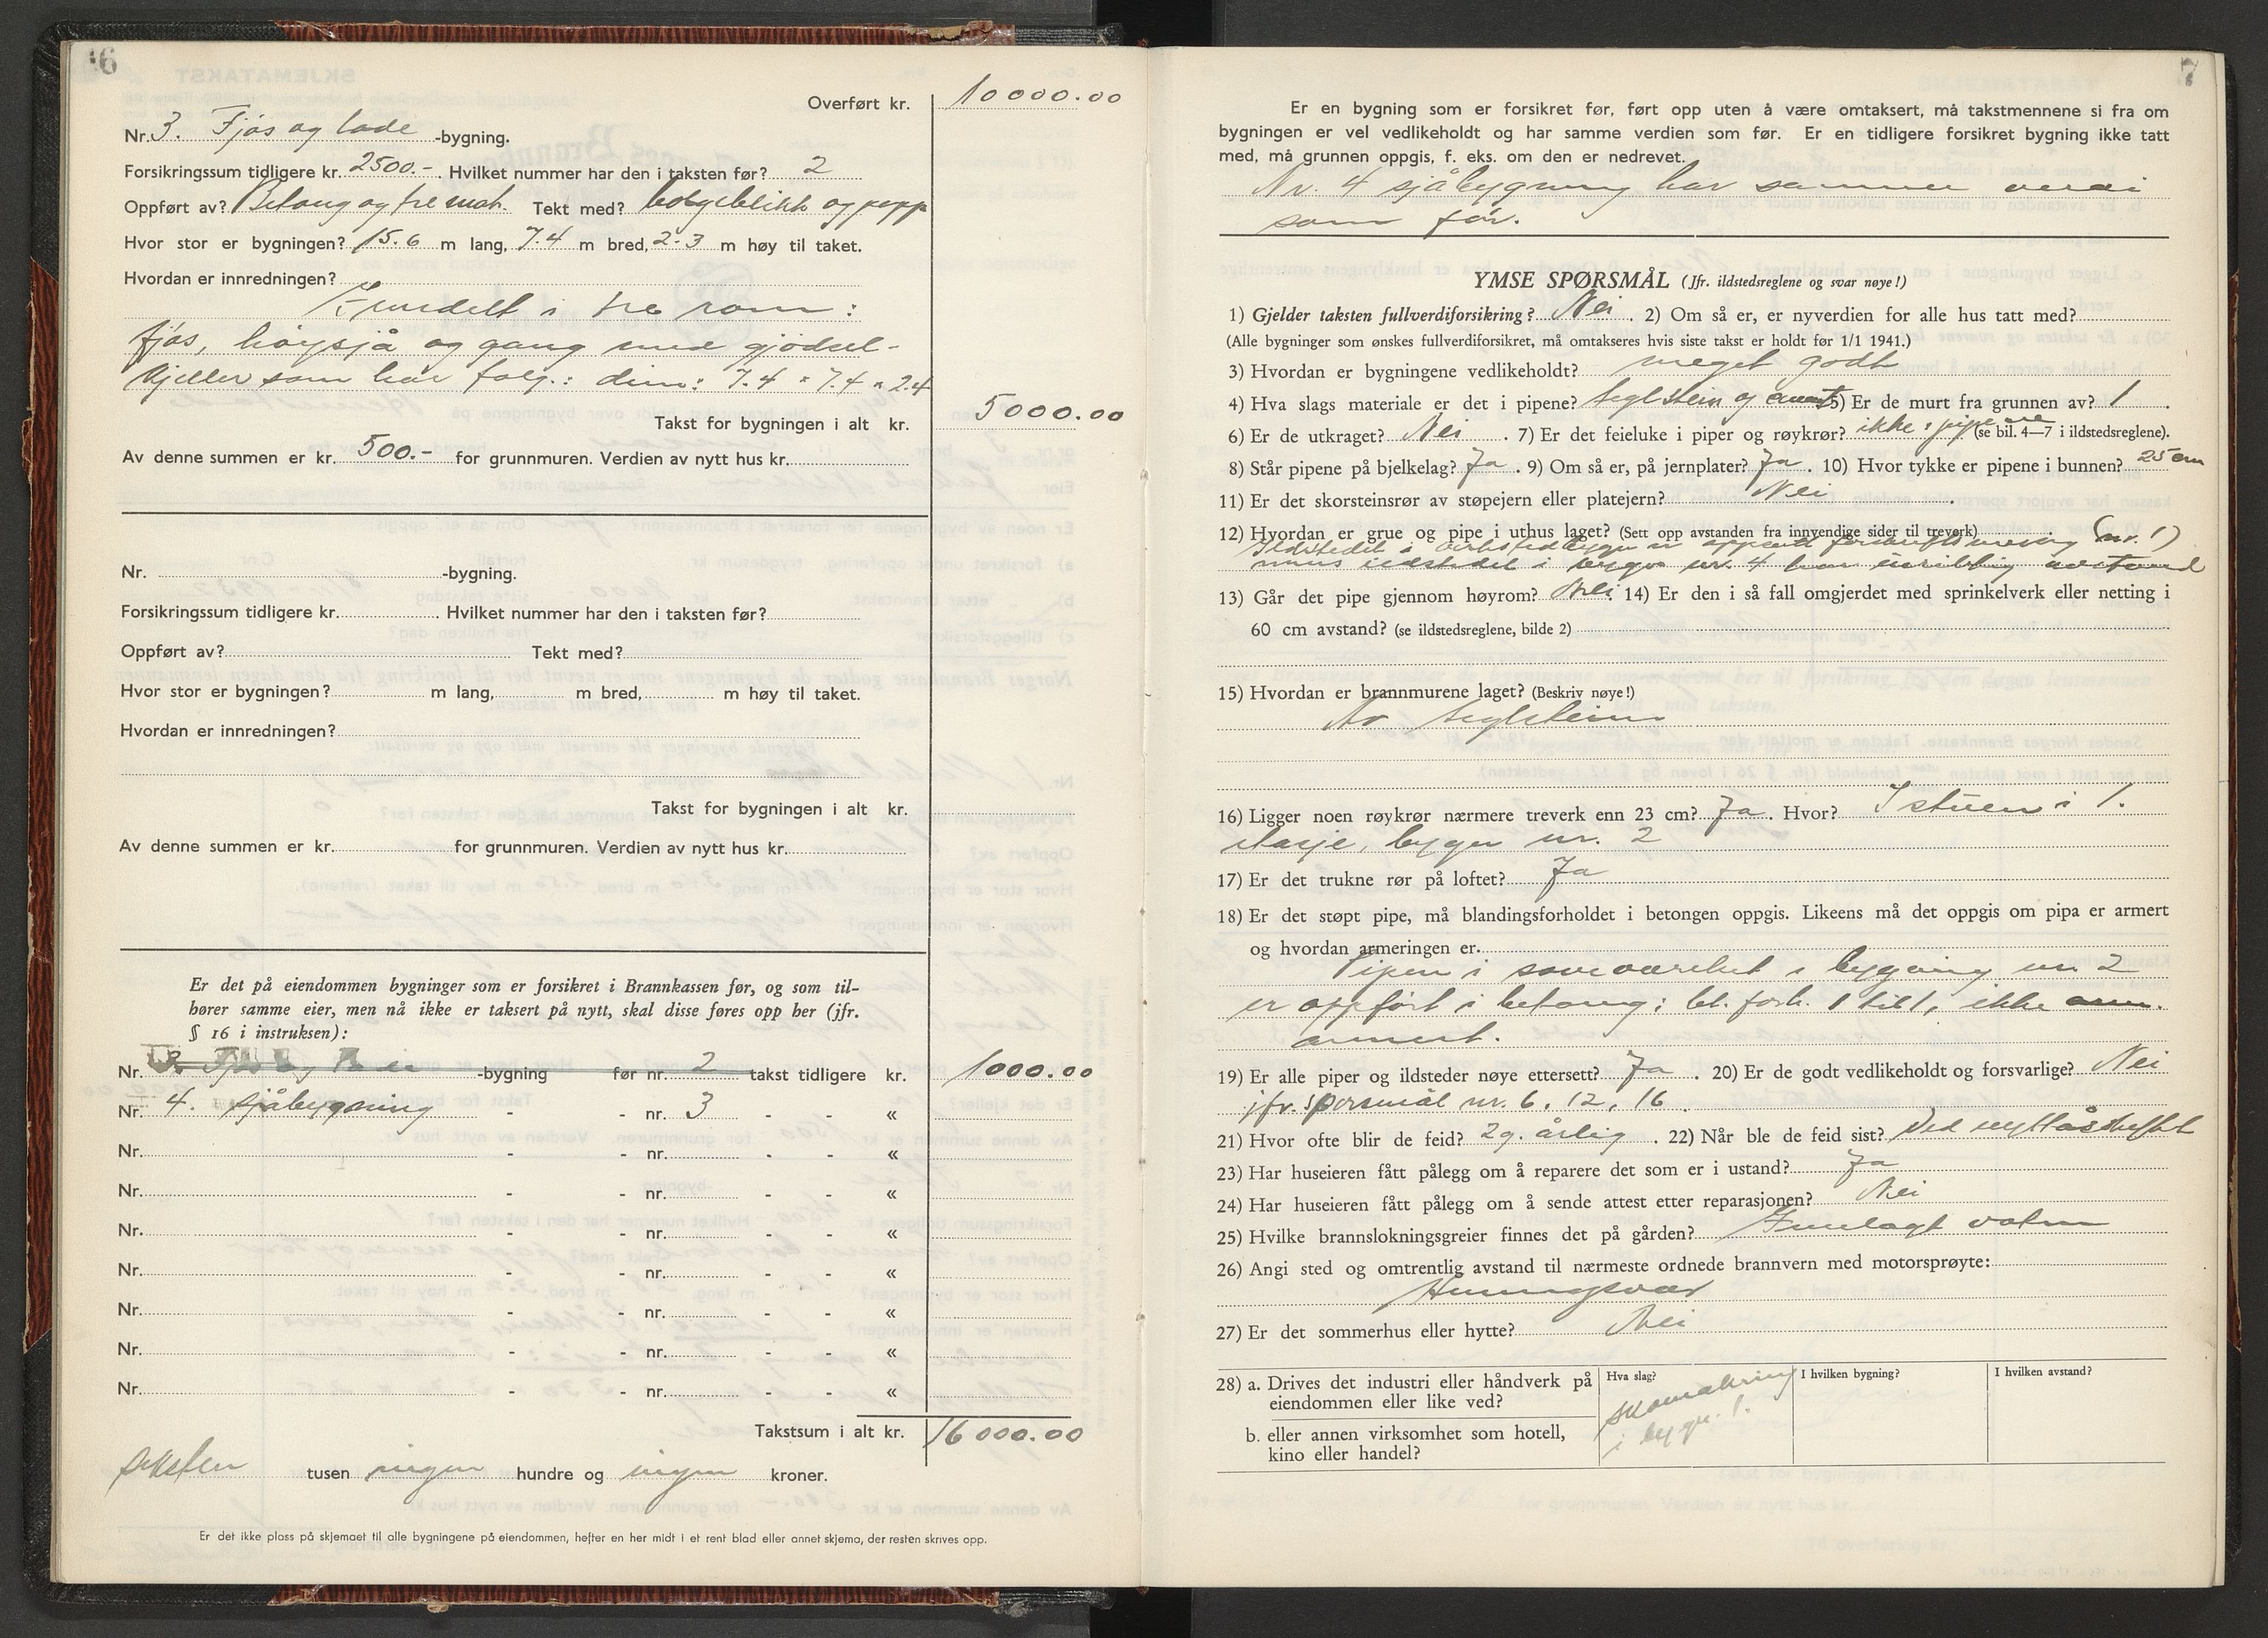 6
Overført kr. 10000.00
Nr. 3. Fjøs og lade -bygning.
Forsikringssum tidligere kr. 2500.- . Hvilket nummer har den i taksten før? 2
Oppført av? Betong og tre mat. Tekt med? bølgeblikk og papp
Hvor stor er bygningen? 15.6 m lang, 7.4 m bred, 2.3 m høy til taket.
Hvordan er innredningen?
Inndelt i tre rom:
fjøs, høysjå og gang med gjødsel-
kjeller som har følg.: dim: 7.4 x 7.4 x 2.4
Takst for bygningen i alt kr. 5000.00
Av denne summen er kr. 500.- for grunnmuren. Verdien av nytt hus kr.
Nr. -bygning.
Forsikringssum tidligere kr. . Hvilket nummer har den i taksten før?
Oppført av? Tekt med?
Hvor stor er bygningen? m lang, m bred, m høy til taket.
Hvordan er innredningen?
Takst for bygningen i alt kr.
Av denne summen er kr. for grunnmuren. Verdien av nytt hus kr.
Er det på eiendommen bygninger som er forsikret i Brannkassen før, og som til-
hører samme eier, men nå ikke er taksert på nytt, skal disse føres opp her (jfr.
§ 16 i instruksen):
Nr. 3. Fjøs og -bygning før nr. 2 takst tidligere kr. 1000.00
Nr. 4. sjåbygning - - nr. 3 - - «
Nr. - - nr. - - «
Nr. - - nr. - - «
Nr. - - nr. - - «
Nr. - - nr. - - «
Nr. - - nr. - - «
Nr. - - nr. - - «
Nr. - - nr. - - «
Takstsum i alt kr. 16000.00
seksten tusen ingen hundre og ingen kroner.
Er det ikke plass på skjemaet til alle bygningene på eiendommen, hefter en her midt i et rent blad eller annet skjema, der resten skrives opp.
7
Er en bygning som er forsikret før, ført opp uten å være omtaksert, må takstmennene si fra om
bygningen er vel vedlikeholdt og har samme verdien som før. Er en tidligere forsikret bygning ikke tatt
med, må grunnen oppgis, f. eks. om den er nedrevet.
Nr. 4 sjåbygning har samme verdi
som før.
YMSE SPØRSMÅL (Jfr. ildstedsreglene og svar nøye!)
1) Gjelder taksten fullverdiforsikring? Nei . 2) Om så er, er nyverdien for alle hus tatt med?
(Alle bygninger som ønskes fullverdiforsikret, må omtakseres hvis siste takst er holdt før 1/1 1941.)
3) Hvordan er bygningene vedlikeholdt? meget godt
4) Hva slags materiale er det i pipene? teglstein og cement 5) Er de murt fra grunnen av? 1 .
6) Er de utkraget? Nei . 7) Er det feieluke i piper og røykrør? ikke i pipene (se bil. 4—7 i ildstedsreglene).
8) Står pipene på bjelkelag? Ja . 9) Om så er, på jernplater? Ja . 10) Hvor tykke er pipene i bunnen? 25 cm
11) Er det skorsteinsrør av støpejern eller platejern? Nei .
12) Hvordan er grue og pipe i uthus laget? (Sett opp avstanden fra innvendige sider til treverk) (nr. 1)
Ildstedet i er forskriftsmessig
mens ildstedet i bygn nr. 4 har avstand
13) Går det pipe gjennom høyrom? Nei . 14) Er den i så fall omgjerdet med sprinkelverk eller netting i
60 cm avstand? (se ildstedsreglene, bilde 2)
15) Hvordan er brannmurene laget? (Beskriv nøye!)
Av teglstein
16) Ligger noen røykrør nærmere treverk enn 23 cm? Ja . Hvor? I stuen i 1.
etasje, bygn nr. 2
17) Er det trukne rør på loftet? Ja
18) Er det støpt pipe, må blandingsforholdet i betongen oppgis. Likeens må det oppgis om pipa er armert
og hvordan armeringen er.
Pipen i soveværelset i bygning nr 2
er oppført i betong: bl. forh. 1 til 1, ikke arm.
armert.
19) Er alle piper og ildsteder nøye ettersett? Ja . 20) Er de godt vedlikeholdt og forsvarlige? Nei
jfr. spørsmål nr. 6, 12, 16.
21) Hvor ofte blir de feid? 2 g. årlig . 22) Når ble de feid sist? Ved
23) Har huseieren fått pålegg om å reparere det som er i ustand? Ja
24) Har huseieren fått pålegg om å sende attest etter reparasjonen? Nei
25) Hvilke brannslokningsgreier finnes det på gården? Innlagt vatn
26) Angi sted og omtrentlig avstand til nærmeste ordnede brannvern med motorsprøyte:
Henningsvær
27) Er det sommerhus eller hytte? Nei
28) a. Drives det industri eller håndverk på
eiendommen eller like ved?
b. eller annen virksomhet som hotell,
kino eller handel?
Hva slag?
skomakring
i bygn. 1.
I hvilken bygning?
I hvilken avstand?